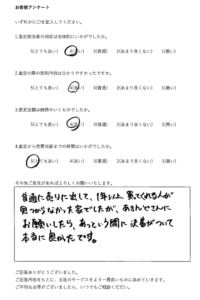 お客様アンケート
いずれかに○を記入してください。
1.査定担当者の対応は全体的にいかがでしたか。
5(とても良い) 4(良い) 3(普通) 2(あまり良くない) 1(悪い)
2.査定の際の説明内容は分かりやすかったですか。
5(とても良い) 4(良い) 3(普通) 2(あまり良くない) 1(悪い)
3.査定金額は納得のいくものでしたか。
5(とても良い) 4(良い) 3(普通) 2(あまり良くない) 1(悪い)
4.査定から売買完結までの時間はいかがでしたか。
5(とても良い) 4(良い) 3(普通) 2(あまり良くない) 1(悪い)
その他ご意見があればよろしくお願いいたします。
普通に売りに出して、1年以上 買ってくれる人が
見つからなかった家でしたが、
お願いしたら、あっという間に決着がついて
本当に良かったです。
ご回答ありがとうございました。
ご回答内容をもとに、当社のサービスをより一層良いものに高めていきます。
ご不明な点等がございましたら、いつでもご相談ください。